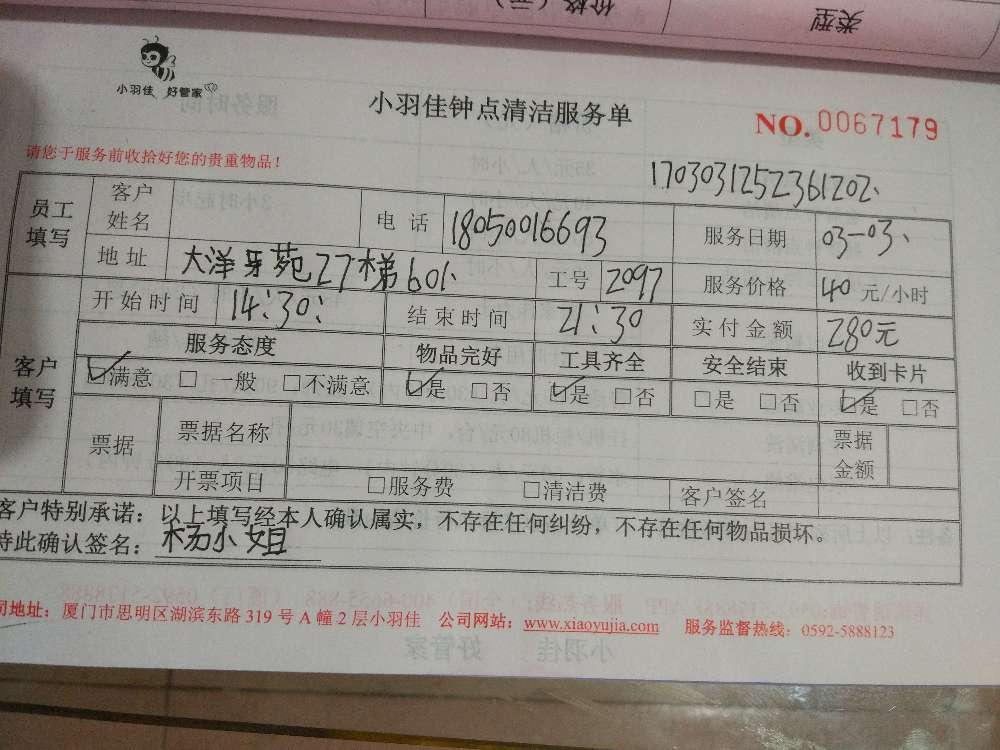 价格（元） 类型
小羽佳 好管家
小羽佳钟点清洁服务单
NO.0067179
请您于服务前收拾好您的贵重物品！
1703031252361202
员工填写 客户姓名 电话 18050016693 服务日期 03-03
地址 大洋牙苑27梯601 工号 2097 服务价格 40 元/小时
客户填写 开始时间 14:30 结束时间 21:30 实付金额 280元
服务态度 物品完好 工具齐全 安全结束 收到卡片
☑满意 □一般 □不满意 ☑是 □否 ☑是 □否 □是 □否 ☑是 □否
票据 票据名称 票据金额
开票项目 □服务费 □清洁费 客户签名
客户特别承诺：以上填写经本人确认属实，不存在任何纠纷，不存在任何物品损坏。
特此确认签名：杨小姐
司地址：厦门市思明区湖滨东路 319 号 A 幢 2 层小羽佳 公司网站：www.xiaoyujia.com 服务监督热线：0592-5888123
小羽佳 好管家